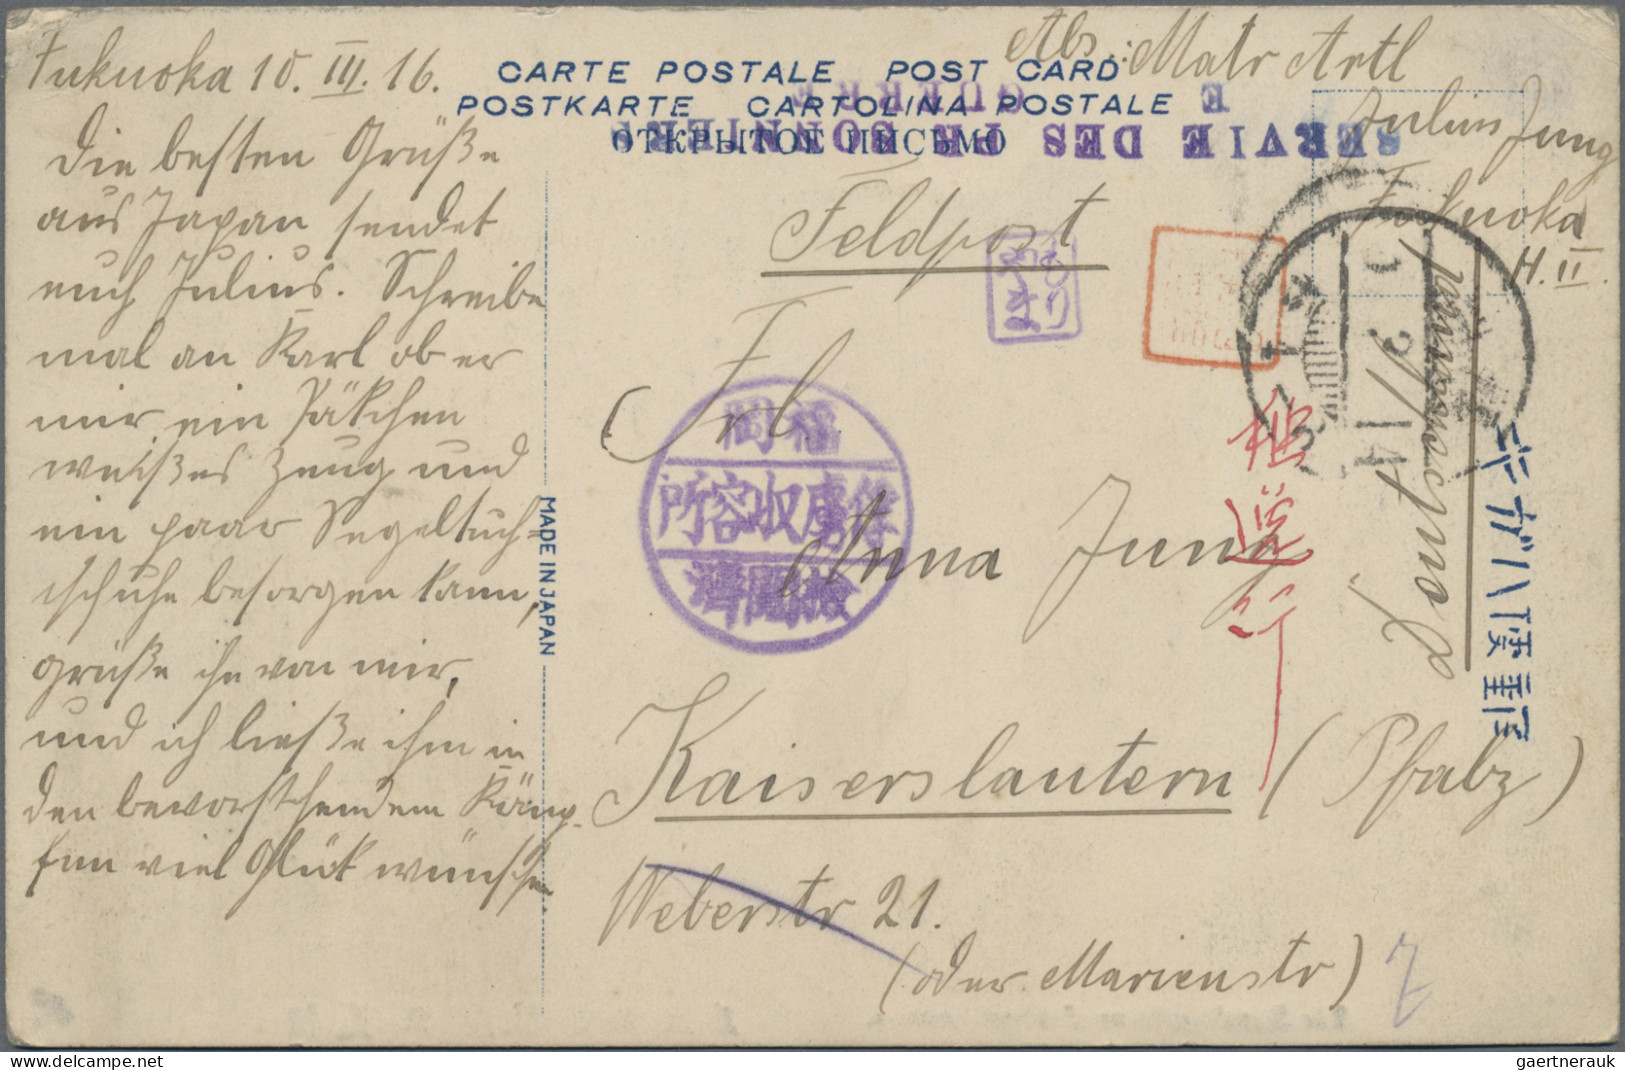 Fukuoka 10. III. 16.
Die besten Grüße
aus Japan sendet
euch Julius. Schreibe
mal an Karl ob er
mir ein Päckchen
weißes Zeug und
ein paar Segeltuch-
schuhe besorgen kann,
grüße ihn von mir,
und ich ließe ihm in
den bevorstehendem Kämp-
fen viel Glück wünschen.
CARTE POSTALE POST CARD
POSTKARTE CARTOLINA POSTALE
ОТКРЫТОЕ ПИСЬМО
SERVIE DES PRISONNIERS
E GUERRE
Abs.: Matr Artl
Julius Jung
Fukuoka
H. II.
Feldpost
もり
やま
福岡
俘虜收容所
檢閲濟
Frl.
Anna Jung
Kaiserslautern (Pfalz)
Weberstr 21.
(oder Marienstr)
MADE IN JAPAN
郵便ハガキ
gaertnerauk //// philasearch.com